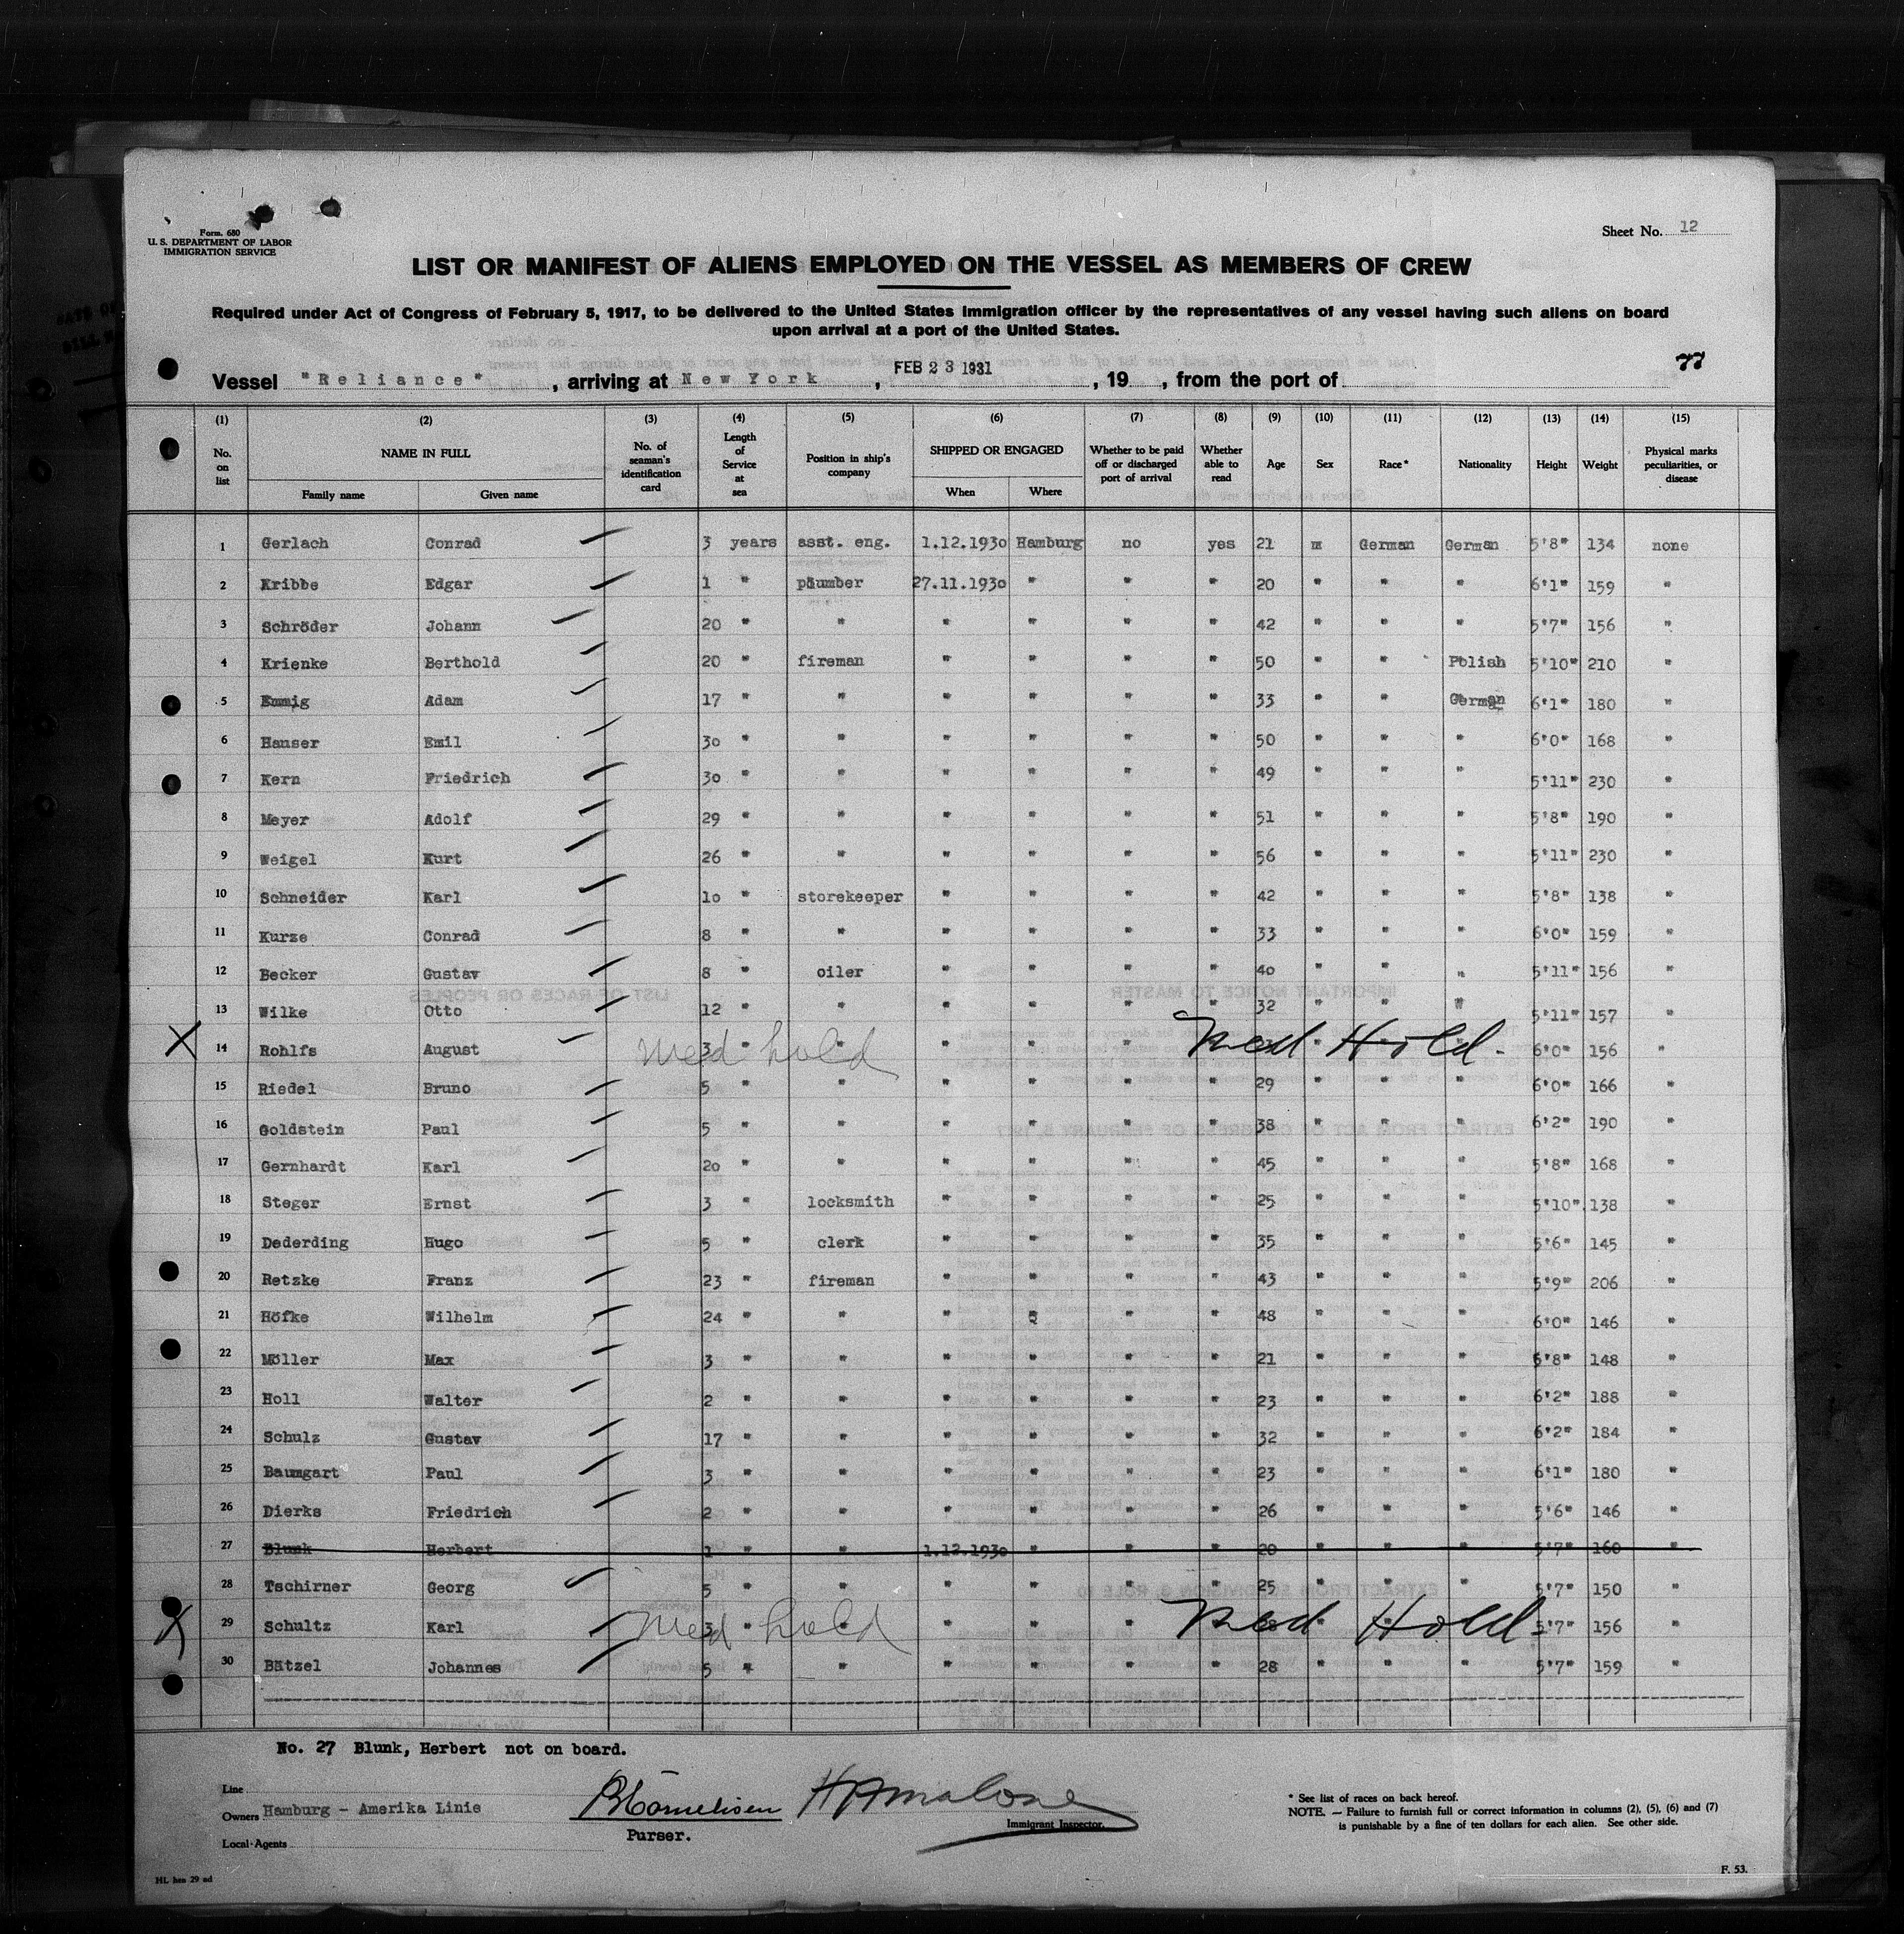 Form. 680
U. S. DEPARTMENT OF LABOR
IMMIGRATION SERVICE
Sheet No. 12
LIST OR MANIFEST OF ALIENS EMPLOYED ON THE VESSEL AS MEMBERS OF CREW
Required under Act of Congress of February 5, 1917, to be delivered to the United States Immigration officer by the representatives of any vessel having such aliens on board
upon arrival at a port of the United States.
77
Vessel "Reliance", arriving at New York, FEB 23 1931, 19 , from the port of
(1) (2) (3) (4) (5) (6) (7) (8) (9) (10) (11) (12) (13) (14) (15)
No. on list NAME IN FULL Family name Given name No. of seaman's identification card Length of Service at sea Position in ship's company SHIPPED OR ENGAGED When Where Whether to be paid off or discharged port of arrival Whether able to read Age Sex Race* Nationality Height Weight Physical marks peculiarities, or disease
1 Gerlach Conrad 3 years asst. eng. 1.12.1930 Hamburg no yes 21 m German German 5'8" 134 none
2 Kribbe Edgar 1 " päumber 27.11.1930 " " " 20 " " " 6'1" 159 "
3 Schröder Johann 20 " " " " " " 42 " " " 5'7" 156 "
4 Krienke Berthold 20 " fireman " " " " 50 " " Polish 5'10" 210 "
5 Emmig Adam 17 " " " " " " 33 " " German 6'1" 180 "
6 Hanser Emil 30 " " " " " " 50 " " " 6'0" 168 "
7 Kern Friedrich 30 " " " " " " 49 " " " 5'11" 230 "
8 Meyer Adolf 29 " " " " " " 51 " " " 5'8" 190 "
9 Weigel Kurt 26 " " " " " " 56 " " " 5'11" 230 "
10 Schneider Karl 10 " storekeeper " " " " 42 " " " 5'8" 138 "
11 Kurze Conrad 8 " " " " " " 33 " " " 6'0" 159 "
12 Becker Gustav 8 " oiler " " " " 40 " " " 5'11" 156 "
13 Wilke Otto 12 " " " " " " 32 " " " 5'11" 157 "
X 14 Rohlfs August med hold 3 " " " " " Med Hold. 6'0" 156 "
15 Riedel Bruno 5 " " " " " " 29 " " " 6'0" 166 "
16 Goldstein Paul 5 " " " " " " 38 " " " 6'2" 190 "
17 Gernhardt Karl 20 " " " " " " 45 " " " 5'8" 168 "
18 Steger Ernst 3 " locksmith " " " " 25 " " " 5'10" 138 "
19 Dederding Hugo 5 " clerk " " " " 35 " " " 5'6" 145 "
20 Retzke Franz 23 " fireman " " " " 43 " " " 5'9" 206 "
21 Höfke Wilhelm 24 " " " " " " 48 " " " 6'0" 146 "
22 Möller Max 3 " " " " " " 21 " " " 6'8" 148 "
23 Holl Walter 2 " " " " " " 23 " " " 6'2" 188 "
24 Schulz Gustav 17 " " " " " " 32 " " " 6'2" 184 "
25 Baumgart Paul 3 " " " " " " 23 " " " 6'1" 180 "
26 Dierks Friedrich 2 " " " " " " 26 " " " 5'6" 146 "
27 Blunk Herbert 1 " " 1.12.1930 " " " 20 " " " 5'7" 160 "
28 Tschirner Georg 5 " " " " " " 25 " " " 5'7" 150 "
X 29 Schultz Karl med hold 3 " " " " " Med Hold. 5'7" 156 "
30 Bätzel Johannes 5 " " " " " " 28 " " " 5'7" 159 "
No. 27 Blunk, Herbert not on board.
Line
Owners Hamburg - Amerika Linie
Local-Agents
Cornelisen
Purser.
HAMalone
Immigrant Inspector.
* See list of races on back hereof.
NOTE. — Failure to furnish full or correct information in columns (2), (5), (6) and (7)
is punishable by a fine of ten dollars for each alien. See other side.
F. 53.